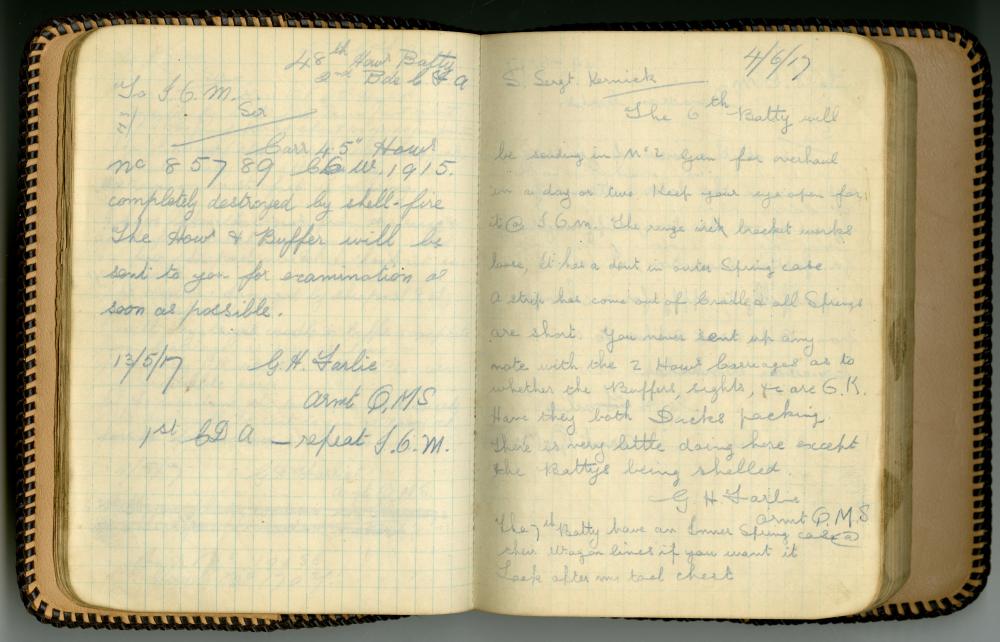 48th How Batty
2nd Bde C F A
To I.O.M.
Sir
Carr 4.5" How
No 85789 1915.
completely destroyed by shell-fire
The How & Buffer will be
sent to you for examination as
soon as possible.
13/5/17 G. H. Farlie
Armt Q.M.S
1st C D A — repeat I.O.M.
4/6/17
S. Sergt. Kernick
The 6th Batty will
be sending in No 2 Gun for overhaul
in a day or two. Keep your eye open for
it @ I.O.M. The range disk bracket works
loose, it has a dent in outer Spring case
A strip has come out of Cradle & all Springs
are short. You never sent up any
note with the 2 How Carriages as to
whether the Buffers, sights, &c are O.K.
Have they both Dicks packing.
There is very little doing here except
the Battys being shelled.
G H Farlie
Armt Q.M.S
The 7th Batty have an Inner Spring case @
their Wagon lines if you want it
Look after my tool chest